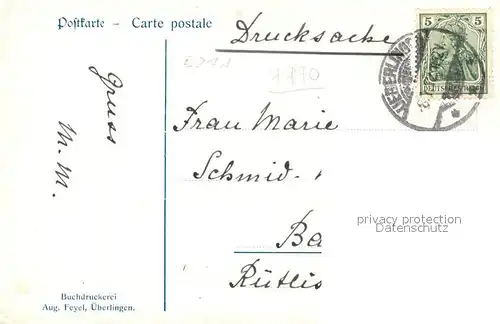 Postkarte - Carte postale
Drucksache
5 5
DEUTSCHES REICH
Gruss
M. M.
Frau Marie
Schmid.
Ba
Rütlis
privacy protection
Datenschutz
Buchdruckerei
Aug. Feyel, Überlingen.